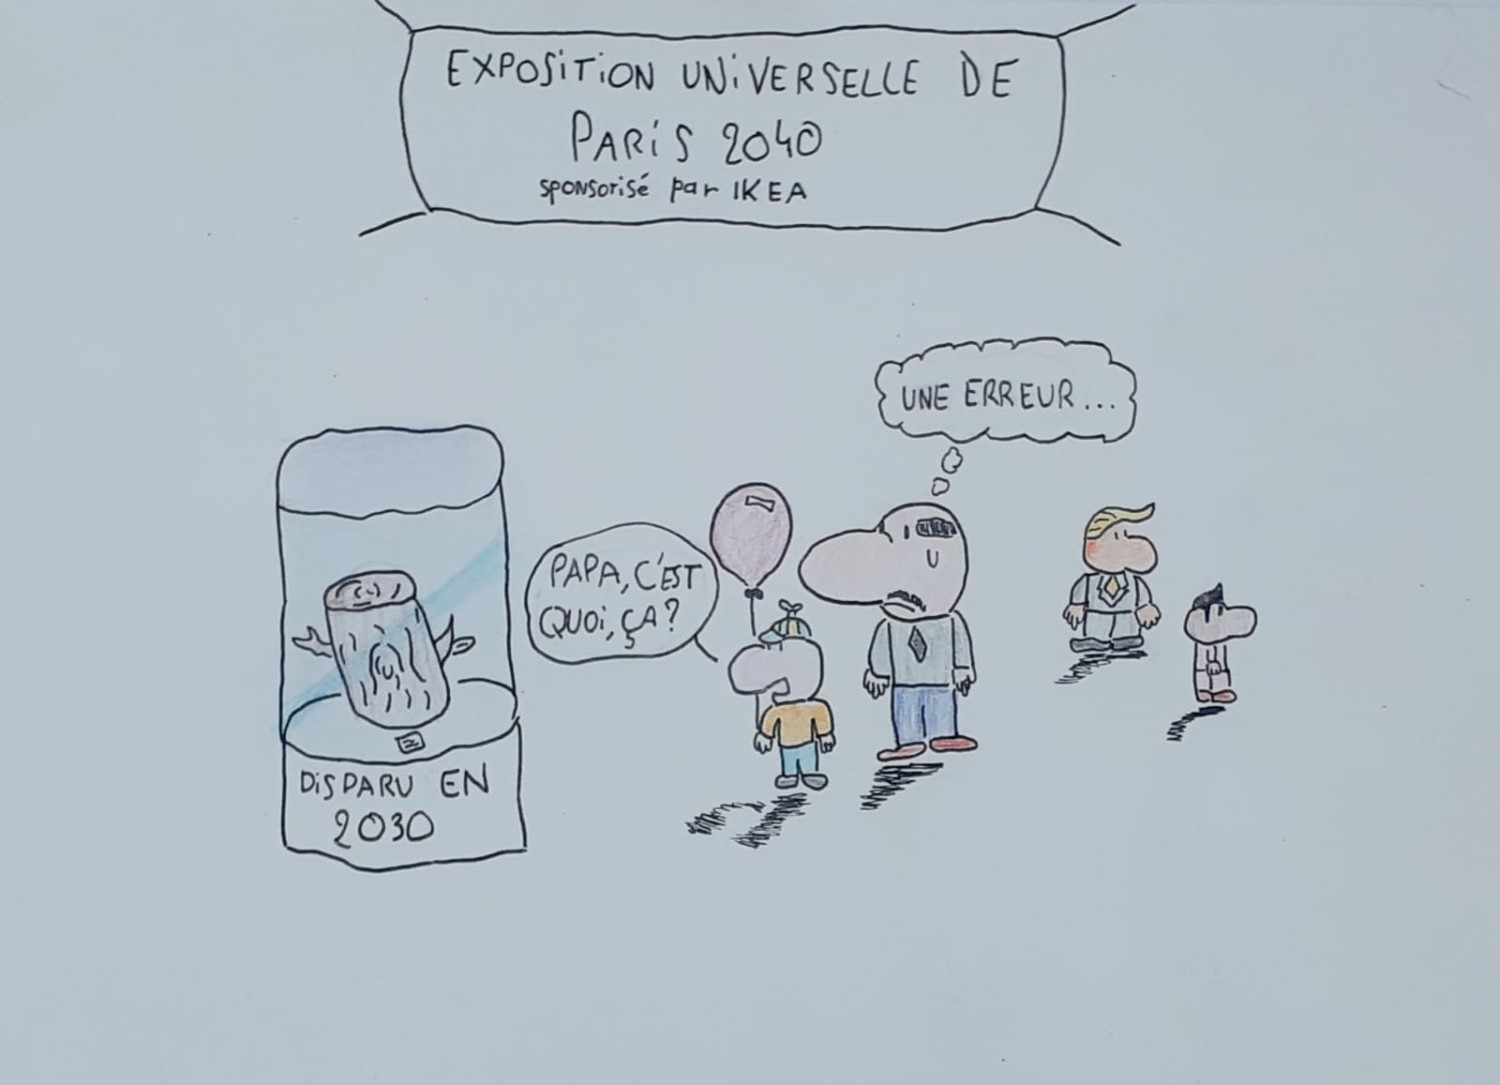 EXPOSITION UNIVERSELLE DE
PARIS 2040
sponsorisé par IKEA
UNE ERREUR...
PAPA, C'EST
QUOI, ÇA?
DISPARU EN
2030